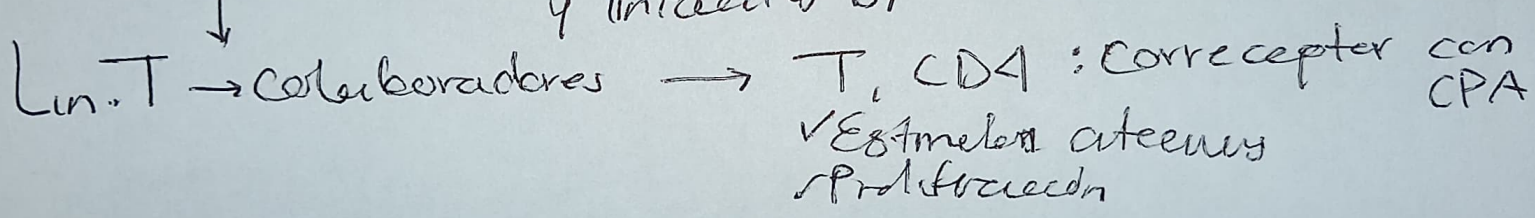 y
Lin. T → colaboradores → T, CD4 : correceptor con CPA
✓ Estimulan
✓ Proliferación